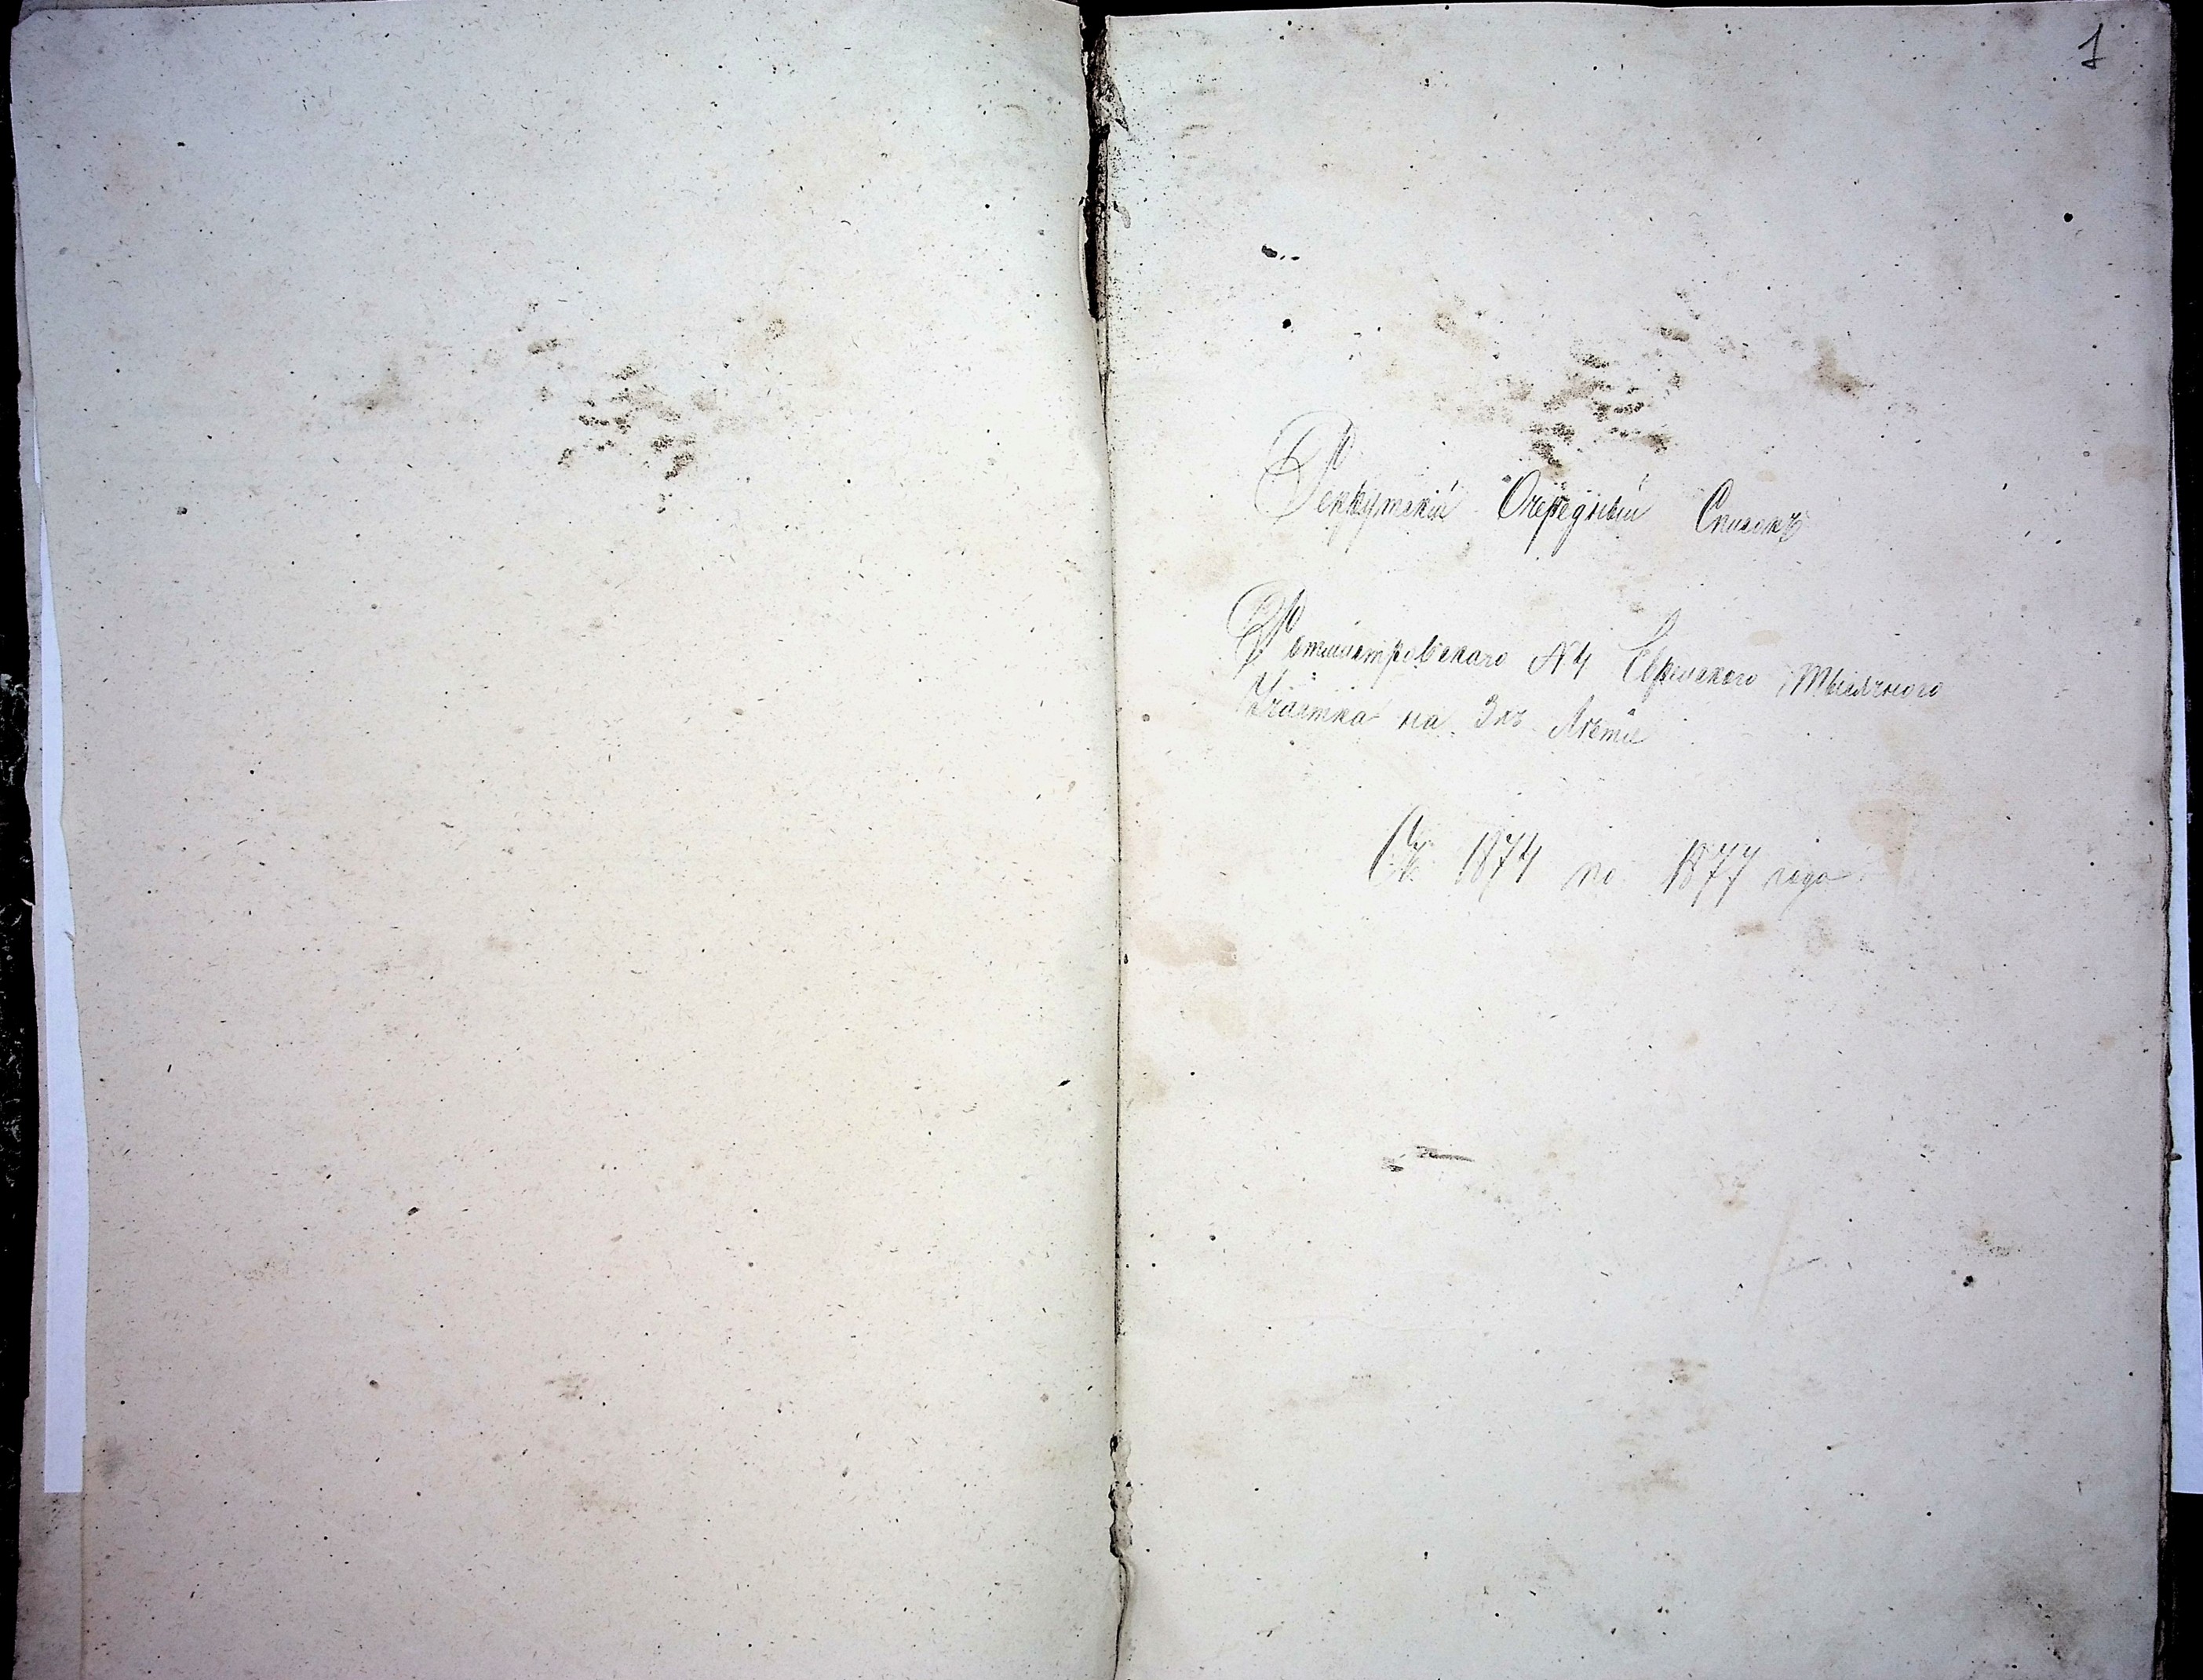 1
Рекрутскій Очередный Списокъ
Ротмистровскаго №4 Еврейскаго Тысячного
Участка на 3хъ Лѣтіе
Съ 1874 по 1877 года